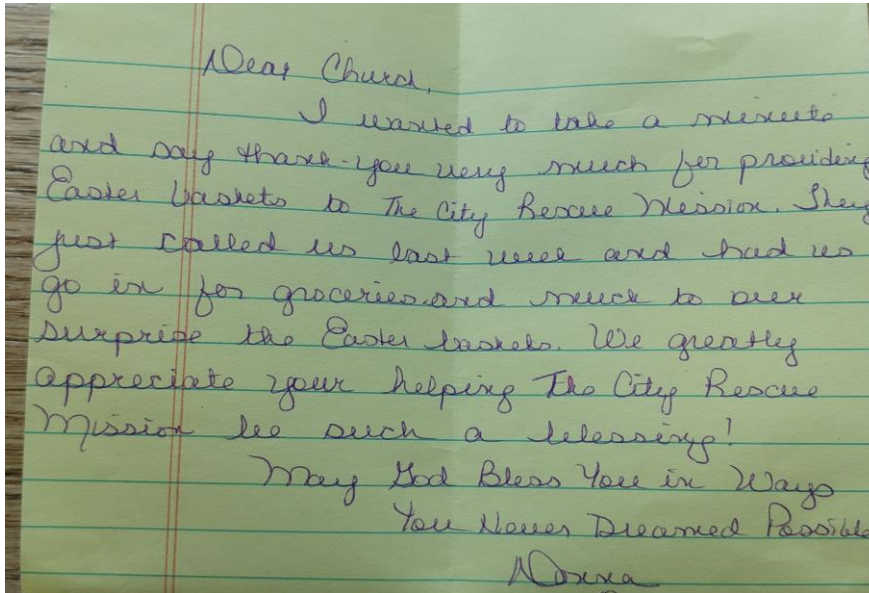 Dear Church,
I wanted to take a minute
and say thank-you very much for providing
Easter baskets to The City Rescue Mission. They
just called us last week and had us
go in for groceries and much to our
surprise the Easter baskets. We greatly
appreciate your helping The City Rescue
Mission be such a blessing!
May God Bless You in Ways
You Never Dreamed Possible
Donna